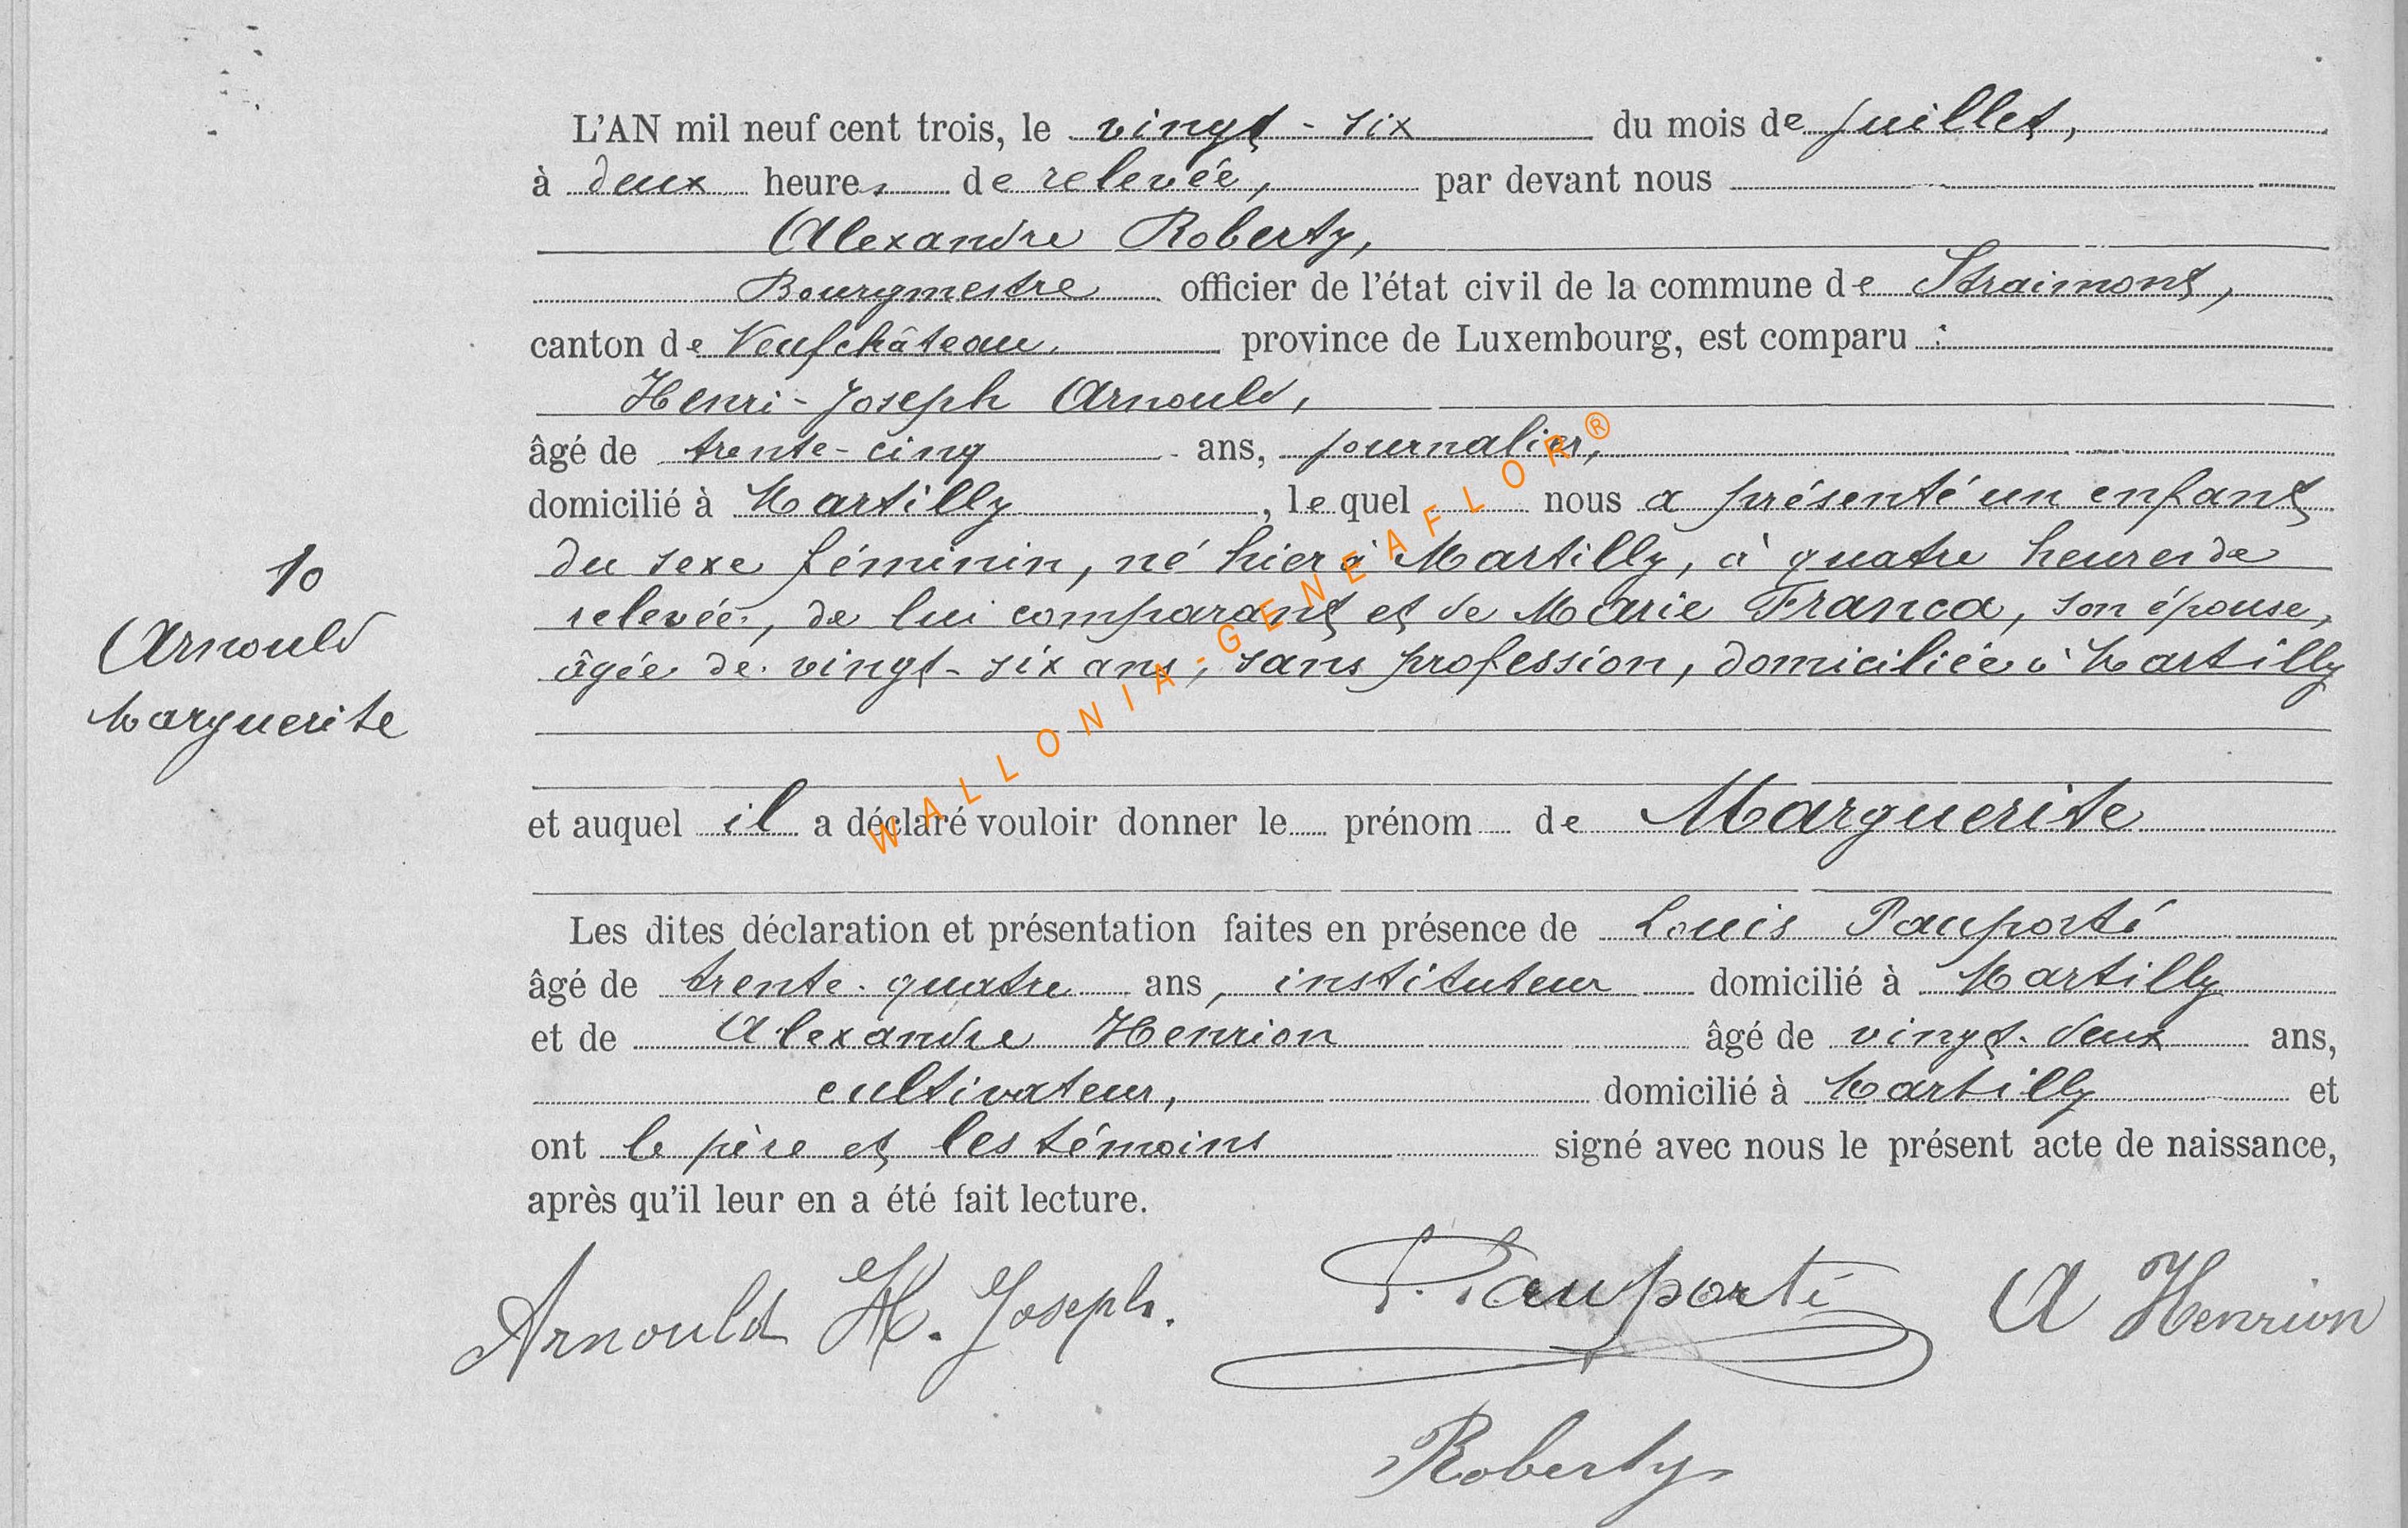 L'AN mil neuf cent trois, le vingt-six du mois de juillet,
à deux heures de relevée, par devant nous
Alexandre Roberty,
Bourgmestre officier de l'état civil de la commune de Straimont,
canton de Neufchâteau province de Luxembourg, est comparu :
Henri-Joseph Arnould,
âgé de trente-cinq ans, journalier,
domicilié à Martilly, lequel nous a présenté un enfant
du sexe féminin, né hier à Martilly, à quatre heures de
relevée, de lui comparant et de Marie Franca, son épouse,
âgée de vingt-six ans, sans profession, domiciliée à Martilly
10
Arnould
Marguerite
et auquel il a déclaré vouloir donner le prénom de Marguerite
Les dites déclaration et présentation faites en présence de Louis Pauporté
âgé de trente-quatre ans, instituteur domicilié à Martilly
et de Alexandre Henrion âgé de vingt-deux ans,
cultivateur, domicilié à Martilly et
ont le père et les témoins signé avec nous le présent acte de naissance,
après qu'il leur en a été fait lecture.
Arnould H. Joseph. L. Pauporté A Henrion
Roberty
WALLONIA-GENEAFLOR®